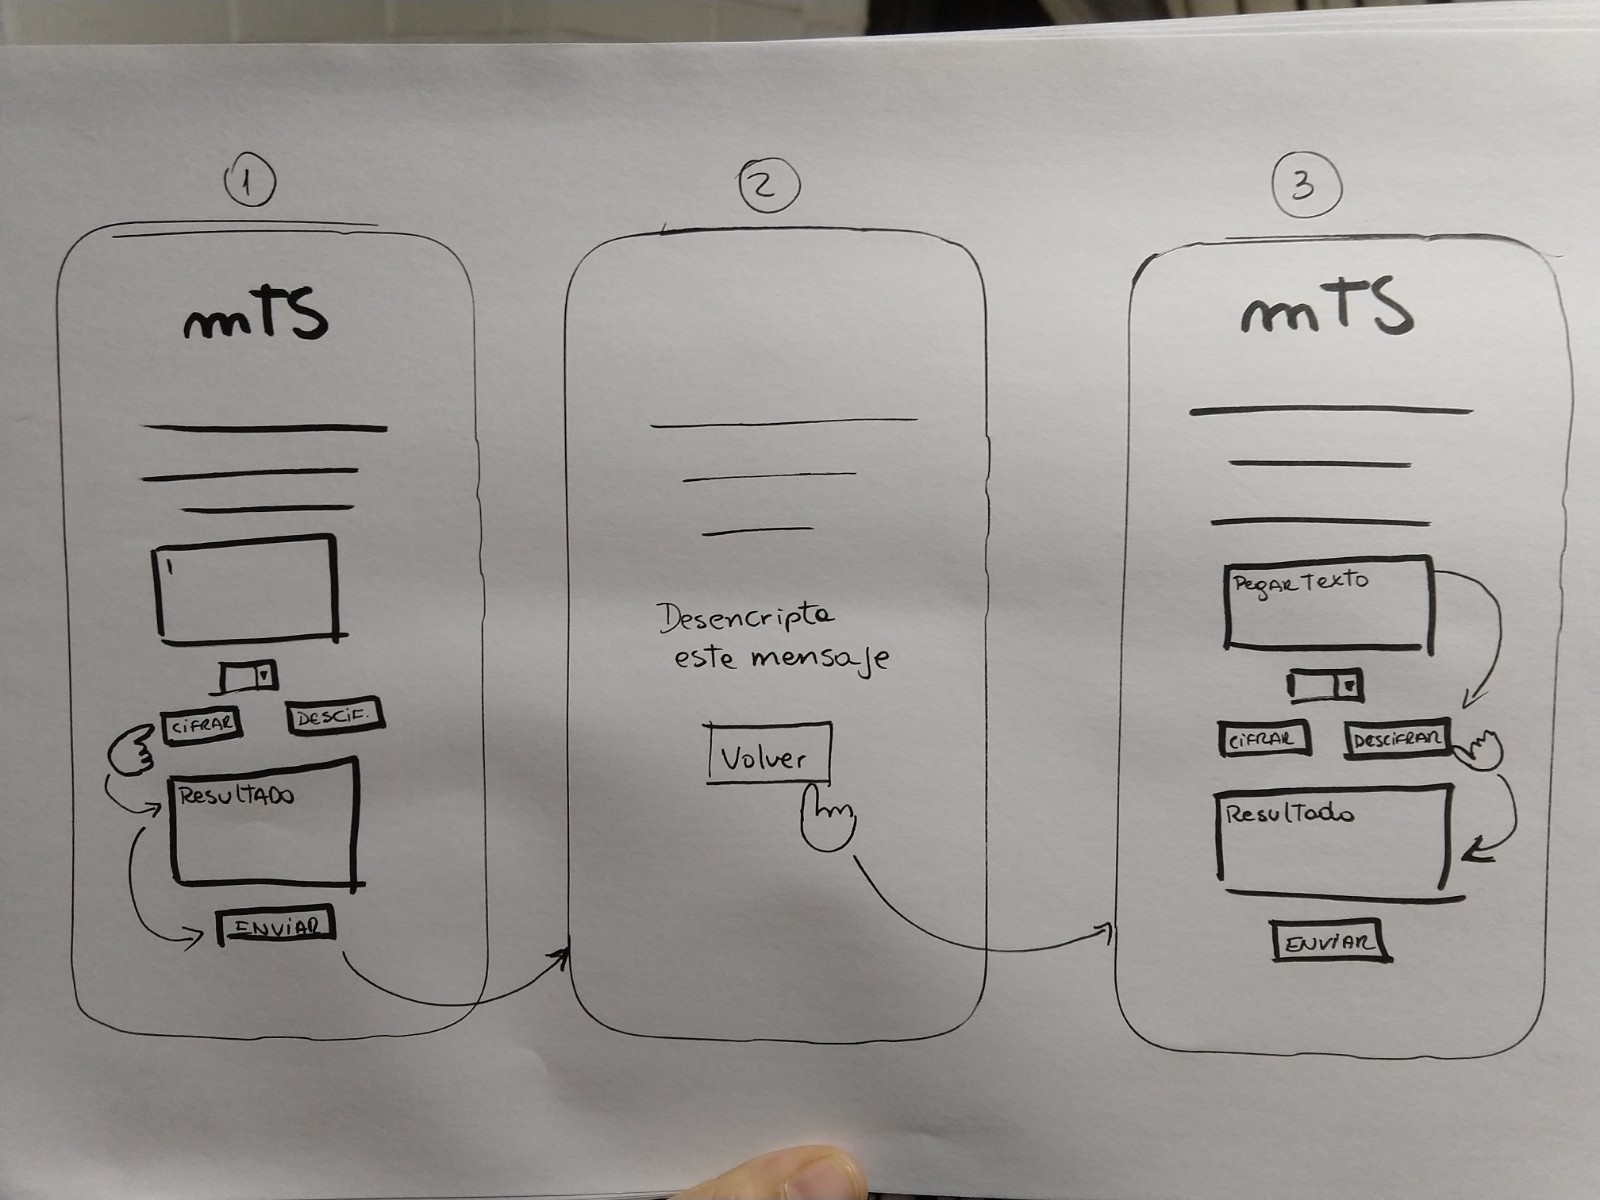 1
mTS
CIFRAR
DESCIF.
RESULTADO
ENVIAR
2
Desencripta
este mensaje
Volver
3
mTS
Pegar Texto
CIFRAR
DESCIFRAR
Resultado
ENVIAR